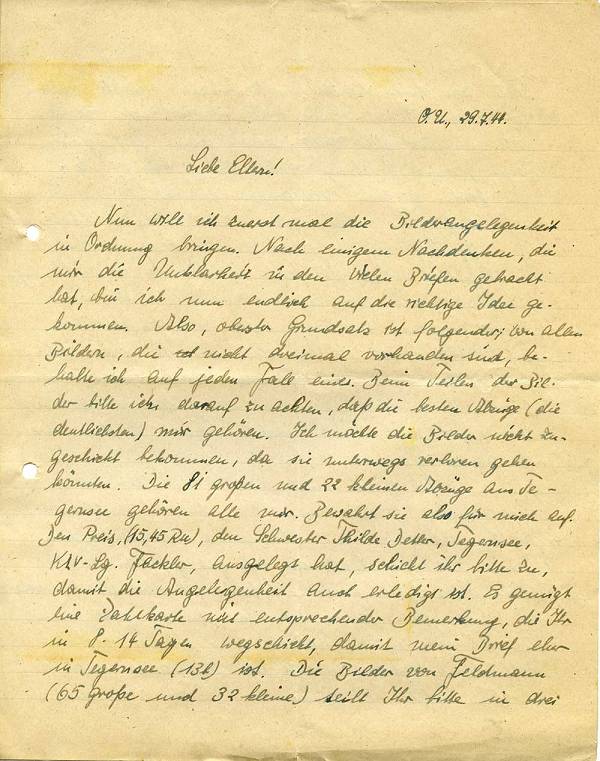 O.U., 29.7.44.
Liebe Eltern!
Nun will ich zuerst mal die Bilderangelegenheit
in Ordnung bringen. Nach einigem Nachdenken, die
mir die Unklarheit in den vielen Briefen gebracht
hat, bin ich nun endlich auf die richtige Idee ge-
kommen. Also, oberster Grundsatz ist folgender: von allen
Bildern, die nicht dreimal vorhanden sind, be-
halte ich auf jeden Fall eines. Beim Teilen der Bil-
der bitte ich darauf zu achten, daß die besten Abzüge (die
deutlichsten) mir gehören. Ich möchte die Bilder nicht zu-
geschickt bekommen, da sie unterwegs verloren gehen
könnten. Die 81 großen und 22 kleinen Abzüge aus Te-
gernsee gehören alle mir. Bewahrt sie also für mich auf.
Den Preis, (15,45 RM), den Schwester Thilde Tegernsee,
KLV-Lg. Fackler, ausgelegt hat, schickt ihr bitte zu,
damit die Angelegenheit auch erledigt ist. Es genügt
eine Zahlkarte mit entsprechender Bemerkung, die Ihr
in 8-14 Tagen wegschickt, damit mein Brief eher
in Tegernsee (13b) ist. Die Bilder von Feldmann
(65 große und 32 kleine) teilt Ihr bitte in drei